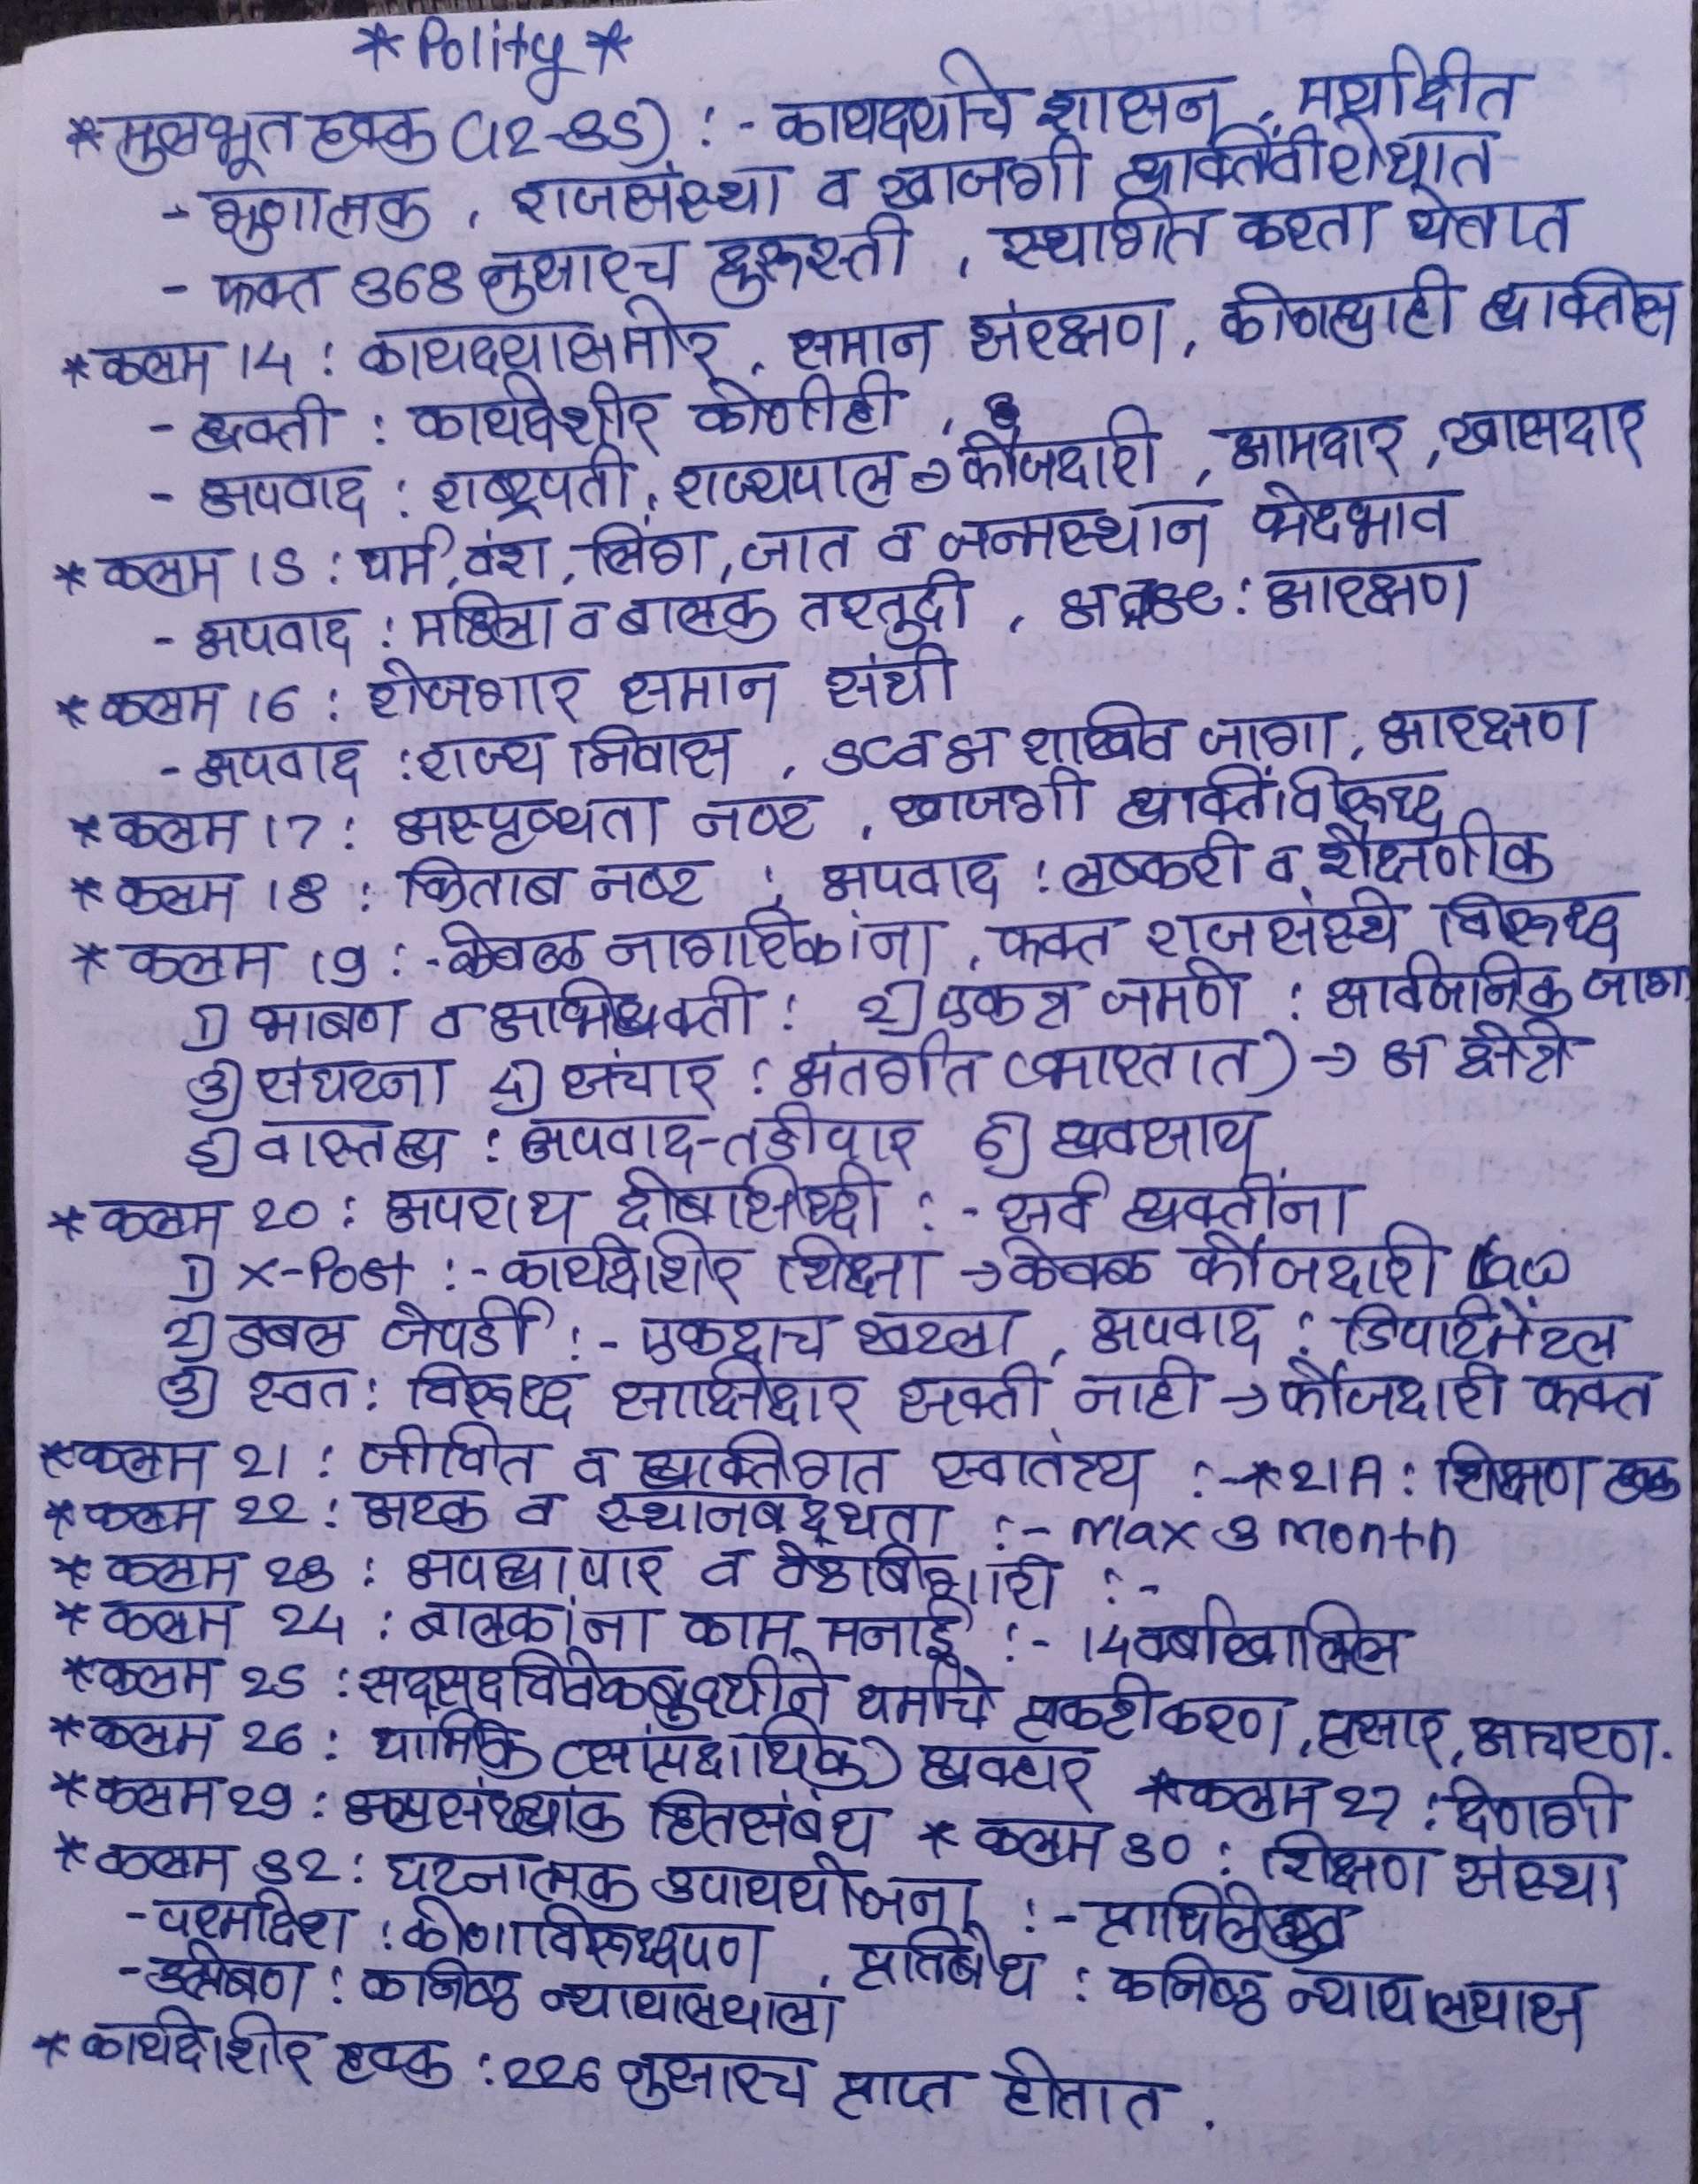 * Polity *
* मुलभूत हक्क (12-35) : - कायद्याचे शासन, मर्यादीत
- ऋणात्मक, राजसंस्था व खाजगी व्यक्तिंवीरोधात
- फक्त 368 नुसारच दुरूस्ती, स्थगित करता येतात
* कलम 14 : कायद्यासमोर, समान संरक्षण, कोणत्याही व्यक्तिस
- व्यक्ती : कायदेशीर कोणीही,
- अपवाद : राष्ट्रपती, राज्यपाल → फौजदारी, आमदार, खासदार
* कलम 15 : धर्म, वंश, लिंग, जात व जन्मस्थान भेदभाव
- अपवाद : महिला व बालक तरतुदी, : आरक्षण
* कलम 16 : रोजगार समान संधी
- अपवाद : राज्य निवास, SC व अ राखीव जागा, आरक्षण
* कलम 17 : अस्पृश्यता नष्ट, खाजगी व्यक्तिंविरूध्द
* कलम 18 : किताब नष्ट ; अपवाद : लष्करी व शैक्षणीक
* कलम 19 : - केवळ नागरिकांना, फक्त राजसंस्थे विरूध्द
1) भाषण व अभिव्यक्ती : 2) एकत्र जमणे : सार्वजनिक जागा
3) संघटना 4) संचार : अंतर्गत (भारतात) → अ क्षेत्रे
5) वास्तव्य : अपवाद - तडीपार 6) व्यवसाय
* कलम 20 : अपराध दोषसिध्दी : - सर्व व्यक्तींना
1) X-Post : - कायदेशिर शिक्षा → केवळ फौजदारी law
2) डबल जेपर्डी : - एकदाच खटला, अपवाद : डिपार्टमेंटल
3) स्वत: विरूध्द साक्षिदार सक्ती नाही → फौजदारी फक्त
* कलम 21 : जीवित व व्यक्तिगत स्वातंत्र्य : - * 21A : शिक्षण हक्क
* कलम 22 : अटक व स्थानबद्धता : - max 3 month
* कलम 23 : अपव्यापार व वेठबीगारी : -
* कलम 24 : बालकांना काम मनाई : - 14 वर्षाखालिल
* कलम 25 : सदसदविवेकबुद्धीने धर्माचे प्रकटीकरण, प्रसार, आचरण.
* कलम 26 : धार्मिक (सांप्रदायिक) व्यवहार * कलम 27 : देणगी
* कलम 29 : अल्पसंख्यांक हितसंबंध * कलम 30 : शिक्षण संस्था
* कलम 32 : घटनात्मक उपाययोजना : - प्राधिलेख
- परमादेश : कोणाविरूध्दपण, प्रतिषेध : कनिष्ठ न्यायालयास
- उत्प्रेषण : कनिष्ठ न्यायालयाला
* कायदेशिर हक्क : 226 नुसारच प्राप्त होतात.